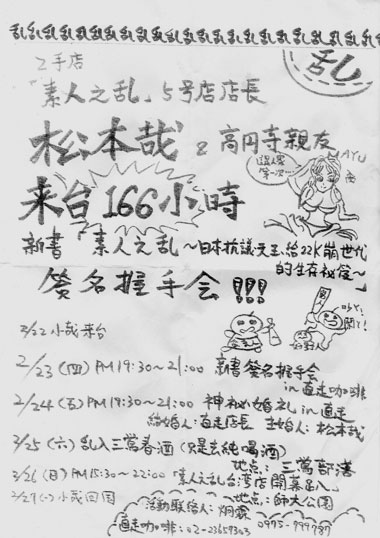 乱乱乱乱乱乱乱乱乱乱乱乱乱乱乱乱乱乱乱乱乱乱乱乱
乱
乙手店
「素人之乱」5号店店長
松本哉 & 高円寺親友
AYU
来台166小時
新書「素人之乱～日本抗議天王,給22K崩世代
的生存祕笈～」
簽名握手会!!!
2/22 小哉来台
2/23 (四) PM 19:30～21:00 新書簽名握手会
in 直走咖啡
2/24 (五) PM 19:30～21:00 神祕婚礼 in 直走
結婚人:直走店長 主婚人:松本哉
3/25 (六) 乱入三鶯春酒 (只是去純喝酒)
地点: 三鶯部落
3/26 (日) PM 15:30～22:00 「素人之乱台湾店開幕」
地点: 師大公園
2/27 (一) 小哉回国
活動联络人:炯霖 0975-799787
直走咖啡: 02-23659303